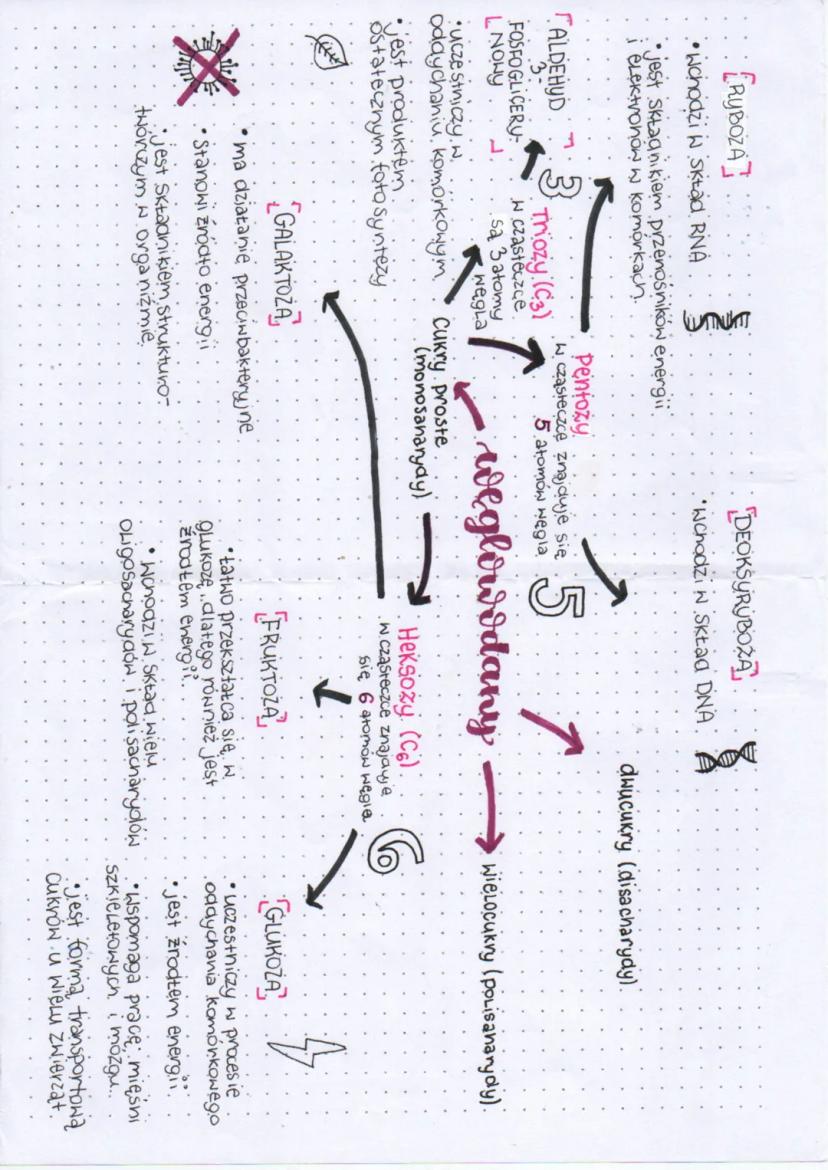 [RYBOZA]
• wchodzi w skład RNA
• jest składnikiem przenośników energii
i elektronów w komórkach
[DEOKSYRYBOZA]
• wchodzi w skład DNA
[ALDEHYD
3-
FOSFOGLICERY-
NOWY]
• uczestniczy w
oddychaniu komórkowym
• jest produktem
ostatecznym fotosyntezy
3
Triozy (C3)
w cząsteczce
są 3 atomy
węgla
Pentozy
w cząsteczce znajduje się
5 atomów węgla
5
dwucukry (disacharydy)
Cukry proste
(monosaharydy)
węglowodany
wielocukry (polisaharydy)
Heksozy (C6)
w cząsteczce znajduje
się 6 atomów węgla
6
[GALAKTOZA]
• ma działanie przeciwbakteryjne
• stanowi źródło energii
• jest składnikiem strukturo-
twórczym w organizmie
[FRUKTOZA]
• łatwo przekształca się w
glukozę, dlatego również jest
źródłem energii
• wchodzi w skład wielu
oligosacharydów i polisacharydów
[GLUKOZA]
• uczestniczy w procesie
oddychania komórkowego
• jest źródłem energii
• wspomaga pracę mięśni
szkieletowych i mózgu
• jest formą transportową
cukrów u wielu zwierząt